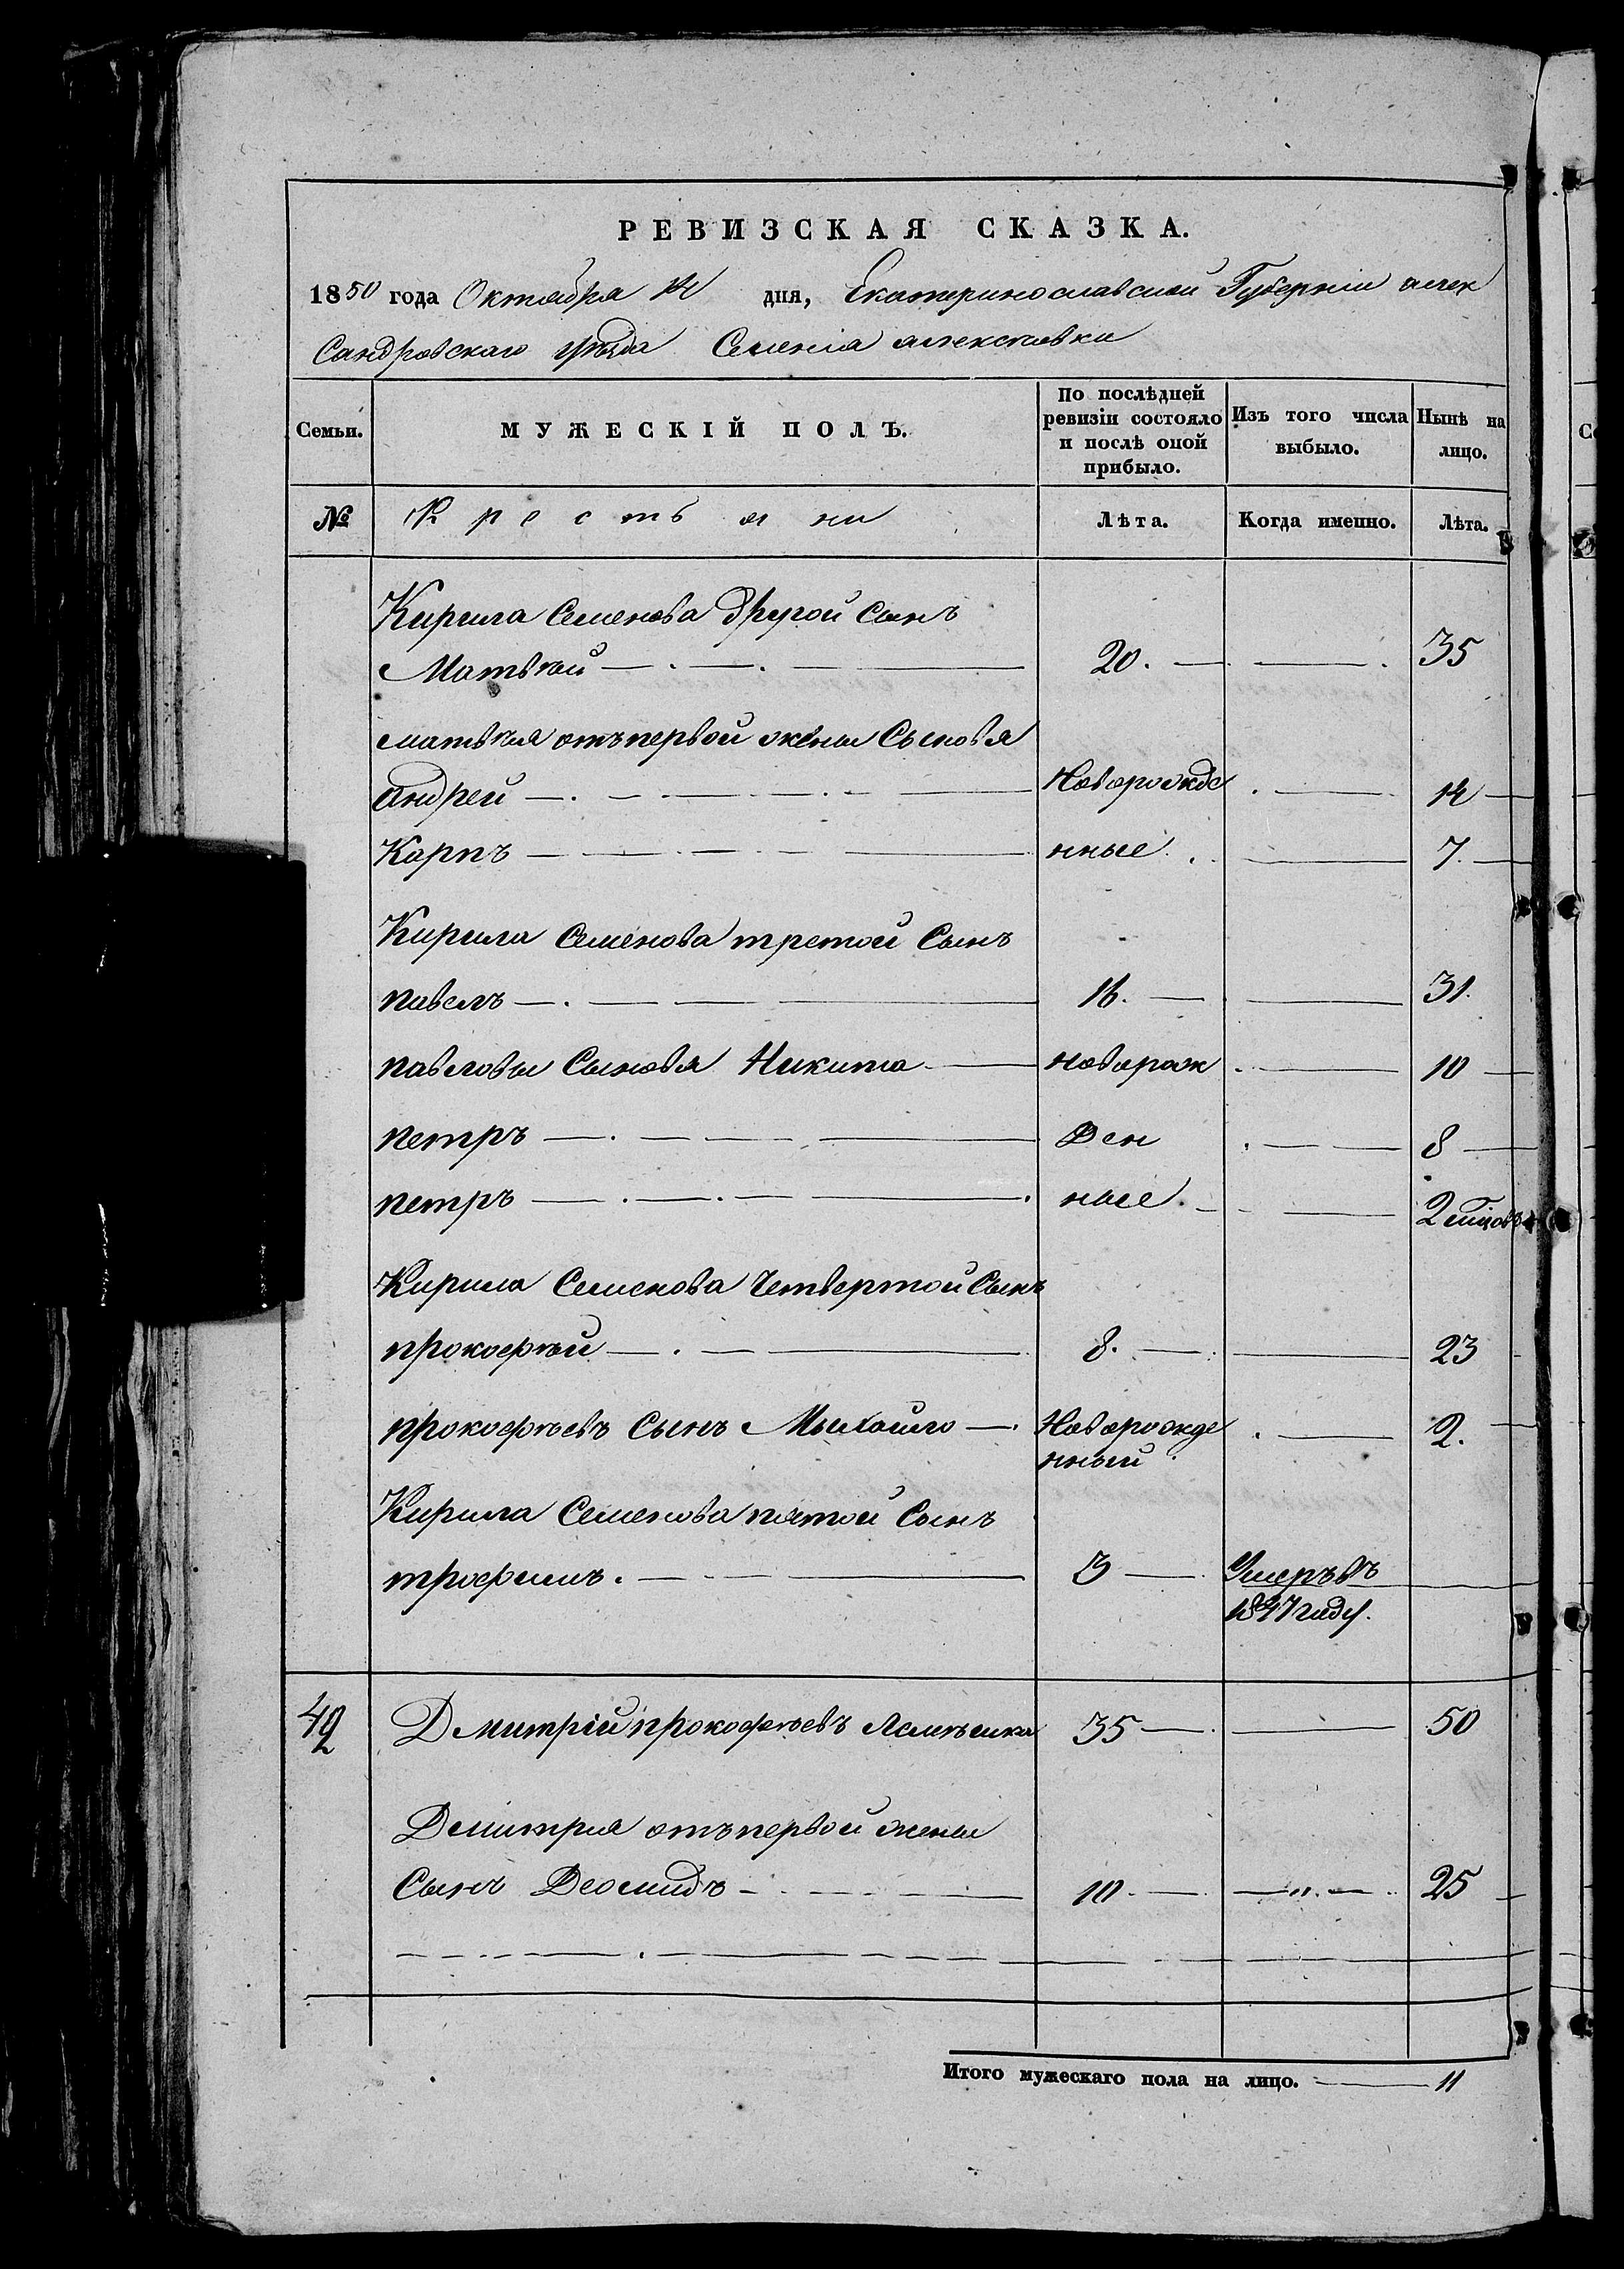 РЕВИЗСКАЯ СКАЗКА.
1850 года Октября 14 дня, Екатеринославской Губерніи алек
Сандровскаго уѣзда Селенія алексѣевки
Семьи. МУЖЕСКІЙ ПОЛЪ. По послѣдней ревизіи состояло и послѣ оной прибыло. Изъ того числа выбыло. Нынѣ на лицо.
№ Крестьяни Лѣта. Когда именно. Лѣта.
Кирила Семенова другой Сынъ
Матвѣй 20. 35
матвѣя отъ первой жены Сыновя
андрей Новорожде 14
Карпъ нные 7.
Кирила Семенова третой Сынъ
павелъ 16. 31.
павловы Сыновя Никита новорож 10
петръ Ден 8
петръ ные 2
Кирила Семенова Четвертой Сынъ
прокофѣй 8. 23
прокофѣевъ Сынъ Мыхайло Новорожде 2.
нный
Кирила Семенова пятой Сынъ
трофимъ. 3 Умеръ въ
1847 году.
42 Дмитрій прокофѣевъ 35 50
Дмитрия отъ первой жены
Сынъ Деомидъ 10 25
Итого мужескаго пола на лицо. 11